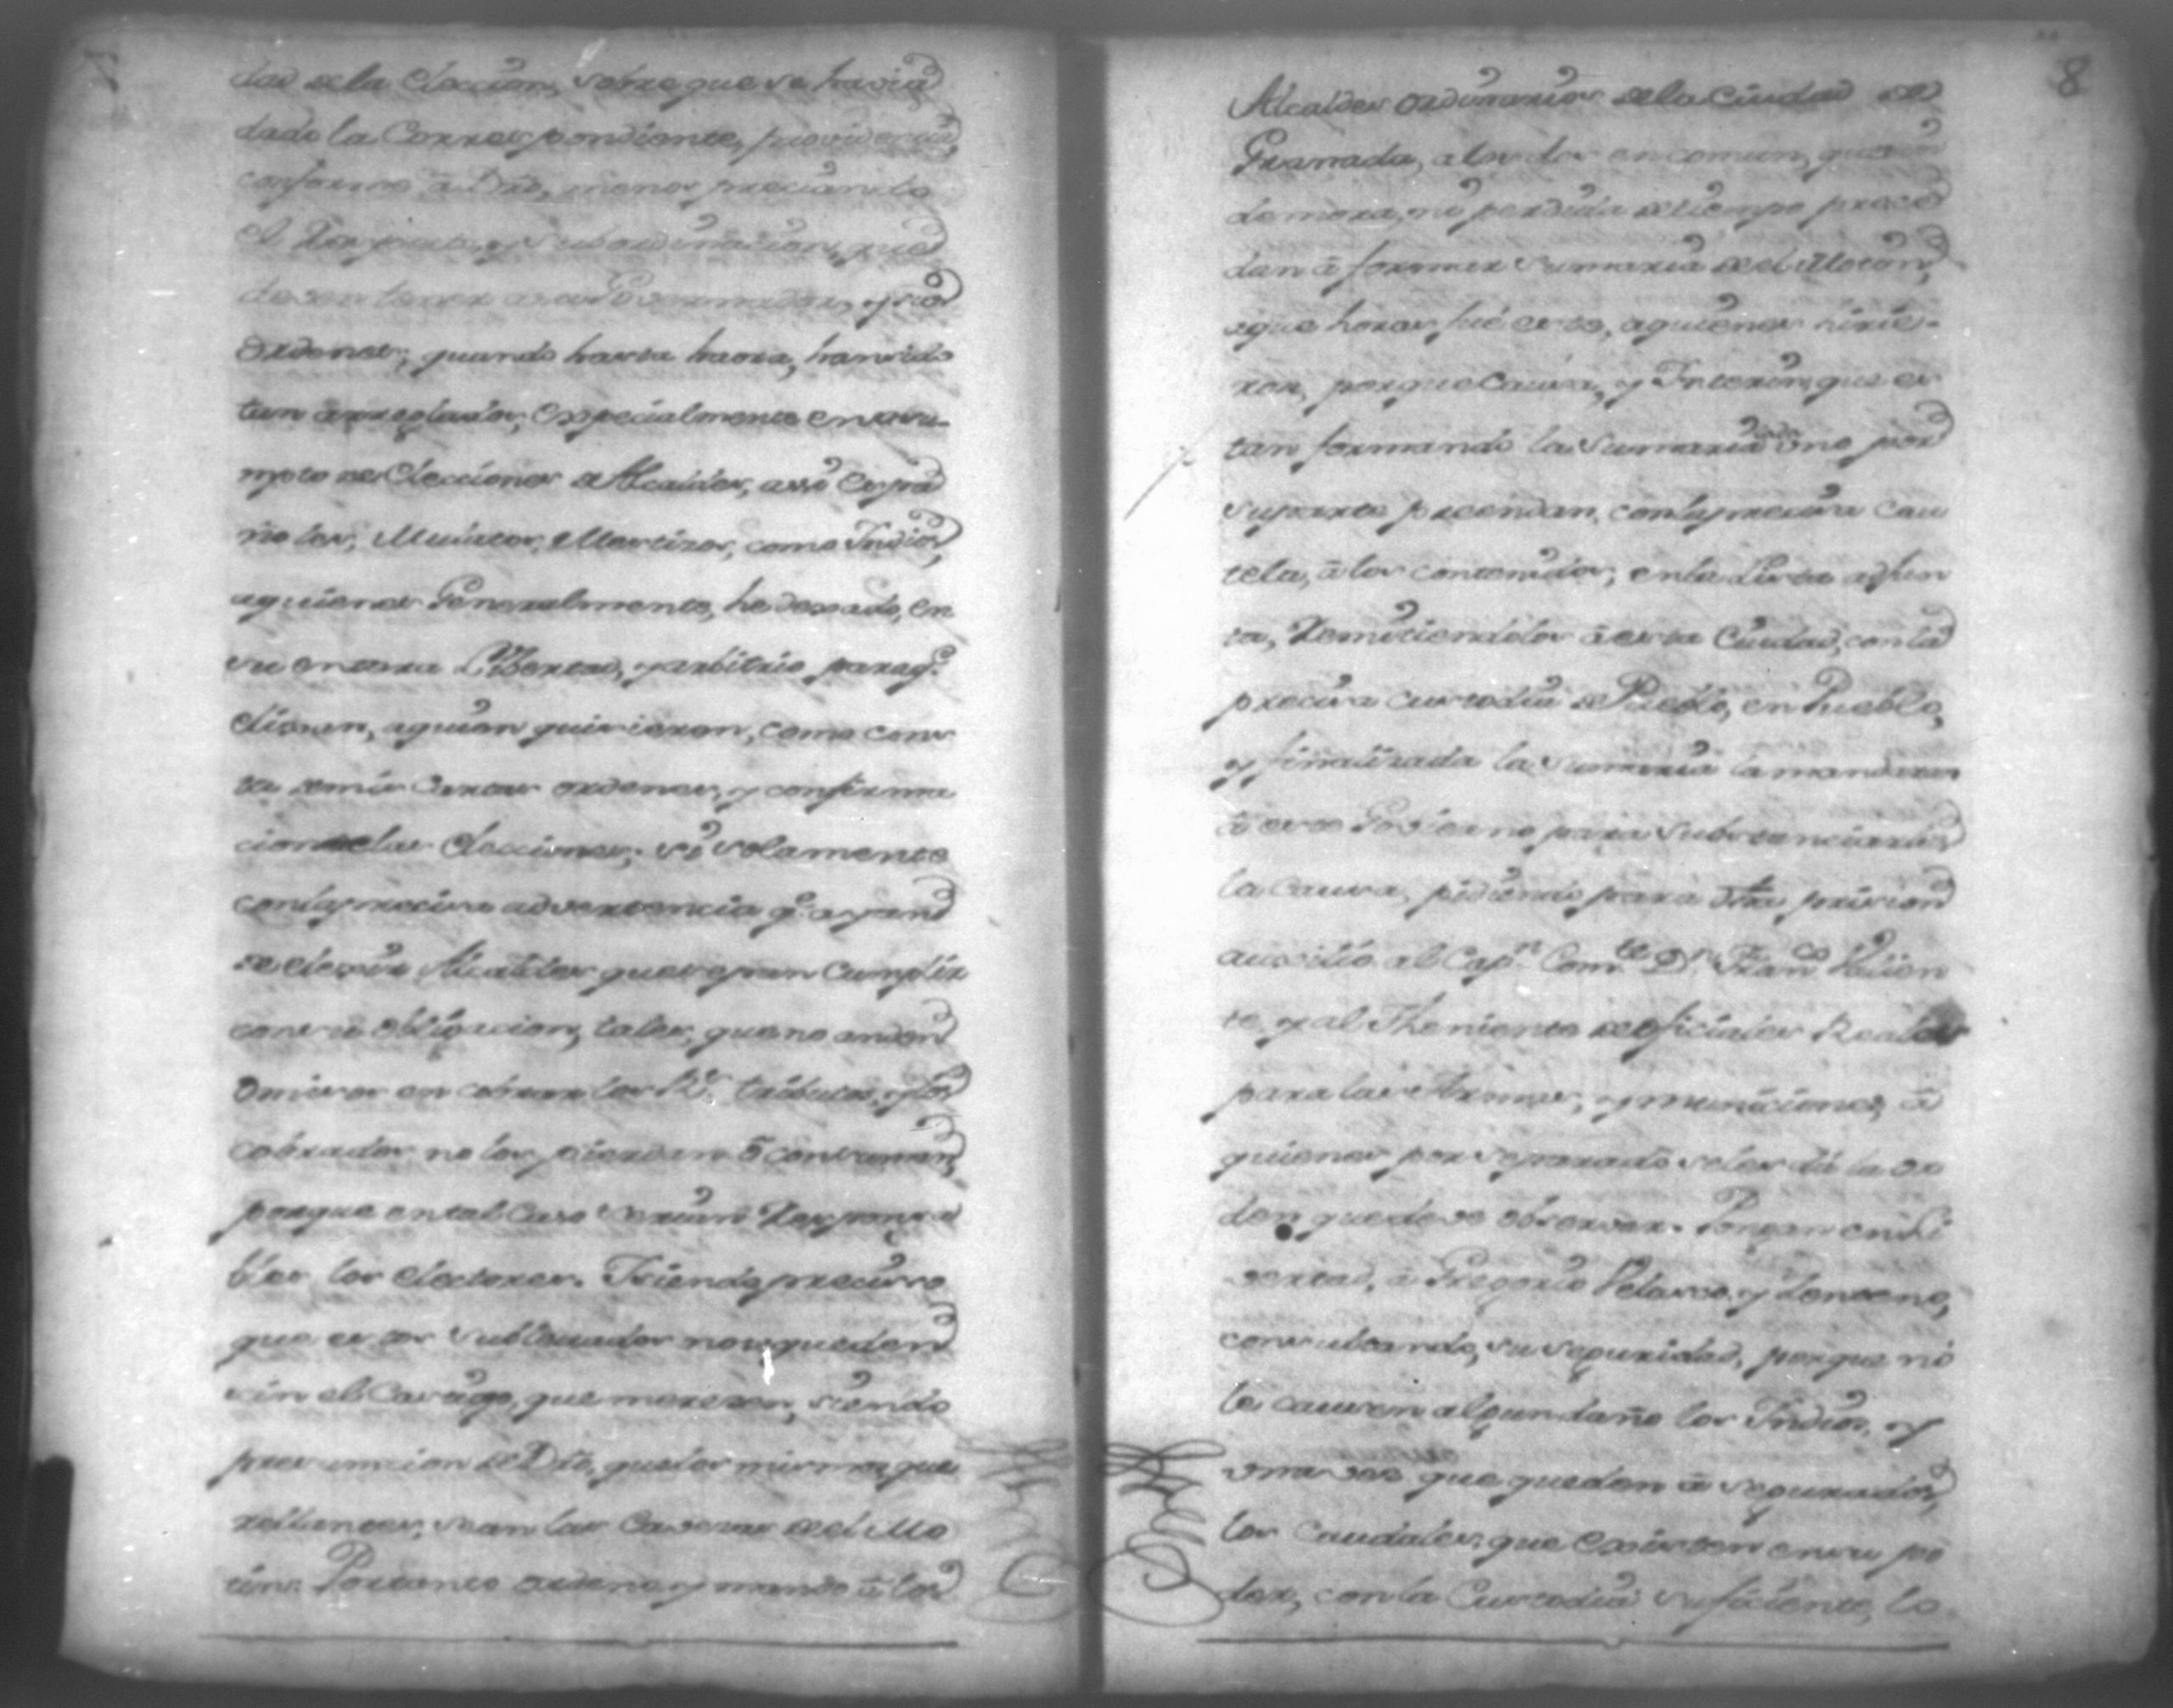 dad de la eleccion, sobre que se havia
dado la Correspondiente, providencia,
conforme â dro, menos preciando
el Respecto, y subordinacion, que
deven tener a su Governador, y sus
Ordenes; quando hasta haora, han sido
tan arreglados, especialmente en asu-
mpto de Elecciones de Alcaldes, assi Espa
ñoles, Mulatos, Mestizos, como Indios,
aquienes Generalmente, he dexado, en
su entera Libertad, y arbitrio para q.e
elixan, aquien quisieren, como cons
ta de mis Cartas ordenes, y confirma
cion de las Elecciones; si solamente
con la precisa advertencia q.e ayan
de elexir Alcaldes que sepan Cumplir
con su obligacion, tales, que no anden
Omisos en cobrar los R.s tributos, y los
cobrados no los pierdan ô consuman,
porque en tal Caso serian Responsa
bles los electores. Y siendo preciso
que estos sublevados no se queden
sin el Castigo, que merecen, siendo
presumcion de Dro, que los mismos que
rellantes, sean las Cavezas de el Mo
tin: Portanto ordeno y mando â los
8
Alcaldes ordinarios de la Ciudad de
Granada, a los dos en comun, que sin
demora, ni perdida de tiempo proce
dan â formar sumaria de el Motin,
aque horas fué esto, aquienes hirie-
ron, porque Causa, y Interin, que es
tan formando la sumaria ô no por
su parte prendan, con la precisa cau
tela, â los contenidos, en la Lista adjun
ta, Remitiendolos â esta Ciudad, con la
precisa custodia de Pueblo, en Pueblo,
y finalizada la sumaria la mandaran
â este Govierno para substanciarse
la causa, pidiendo para dha prision
auxilio al Cap.n Com.te D.n Fran.co Valien
te, y al Theniente de oficiales Reales
para las Armas, y municiones, â
quienes por separado se les dá la or
den que deve observar. Pongan en li
vertad, â Gregorio Velasco, y Lenzeno,
consultando, su seguridad, porque no
le causen algun daño los Indios, y
una vez que queden â segurados,
los Caudales, que existen en su po
der, con la Custodia suficiente, lo